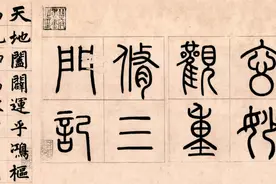 玄妙
觀重
脩三
門記
天地闔闢運乎鴻樞